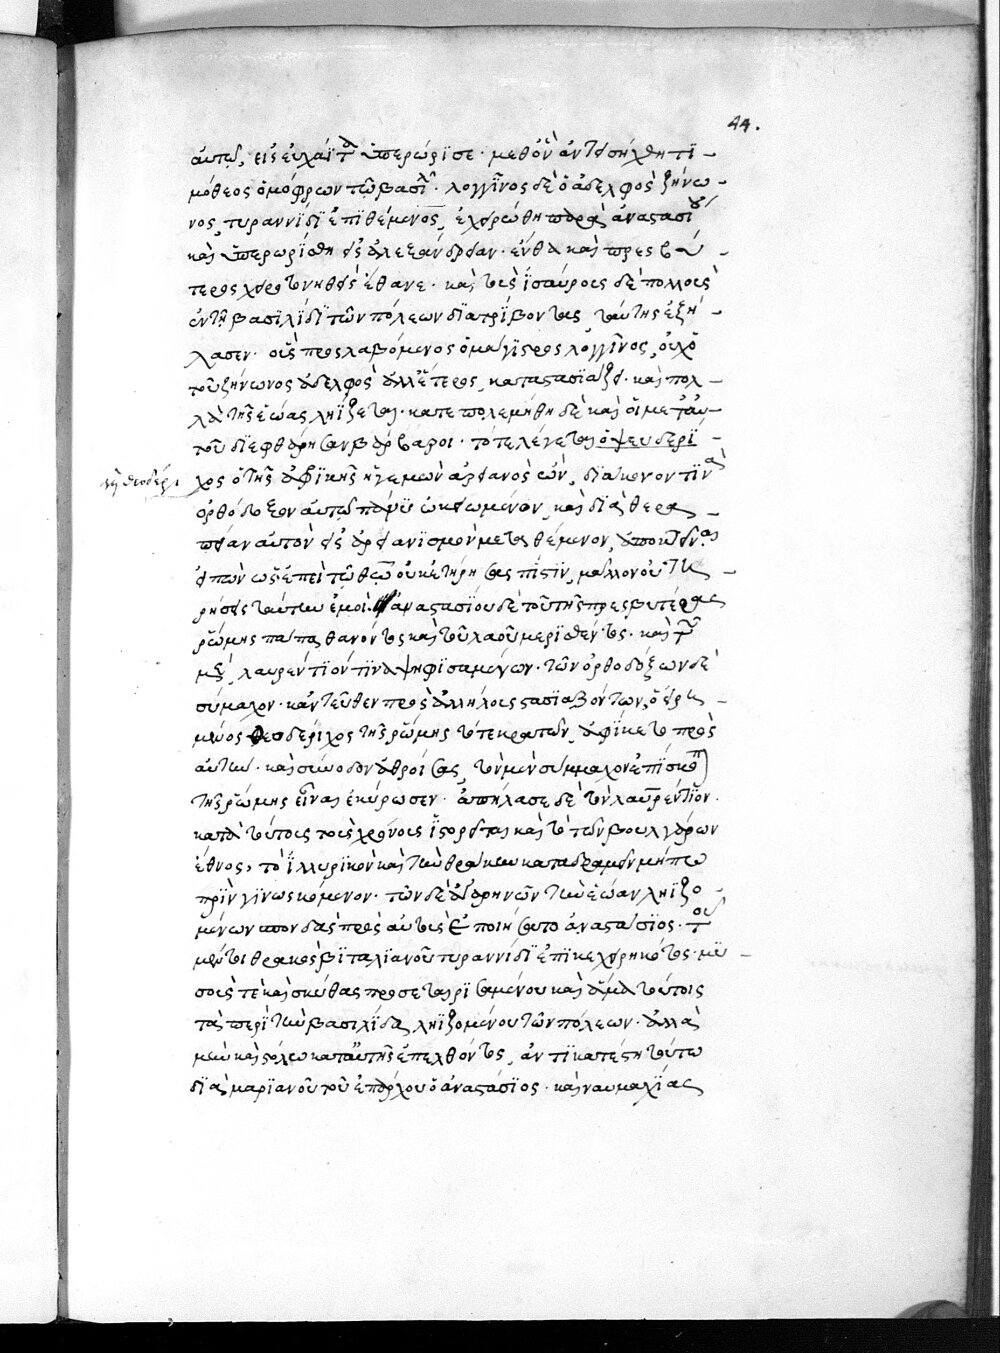 44.
αὐτὸν, εἰς εὐχάϊτα ὑπερώρϊσε· μεθ' ὃν ἀντεισήχθη τϊ-
μόθεος ὁμόφρων τῶ βασιλεῖ. λογγῖνος δὲ ὁ ἀδελφὸς ζήνω-
νος, τυραννίδϊ ἐπϊθέμενος, ἐχειρώθη παρὰ ἀναστασίου
καὶ ὑπερωρίσθη εἰς ἀλεξάνδρειαν· ἔνθα καὶ πρεσβύ-
τερος χειροτονηθεὶς ἔθανε· καὶ τοὺς ἰσαύρους δὲ πολλοὺς
ἐν τῆ βασιλίδϊ τῶν πόλεων δϊατρίβοντας, ταύτης ἐξή-
λασεν· οὓς προσλαβόμενος ὁ μάγϊστρος λογγῖνος, οὐχ ὁ
τοῦ ζήνωνος ἀδελφὸς ἀλλ' ἕτερος, καταστασϊάζει· καὶ πολ-
λὰ τῆς ἑώας ληΐζεται· κατεπολεμήθη δὲ καὶ οἱ μετ' αὐ-
τοῦ δϊεφθάρησαν βάρβαροι· τότε λέγεται ὁ ψευδερϊ-
χος ὁ τῆς ἀφρικῆς ἡγεμὼν ἀρειανὸς ὢν, δϊάκονον τϊνὰ
ὀρθόδοξον αὐτῶ πάνυ ὠκειωμένον, καὶ δϊὰ θερα-
πείαν αὐτοῦ εἰς ἀρειανϊσμὸν μεταθέμενον, ἀποκτεῖναι
εἰπὼν ὡς ἐπεὶ τῶ θεῶ οὐκ ἐτήρησας πίστϊν, μᾶλλον οὐ τη-
ρήσεις ταύτην ἐμοί. ἀναστασίου δὲ τοῦ τῆς πρεσβυτέρας
ῥώμης πάπα θανόντος καὶ τοῦ λαοῦ μερϊσθέντος· καὶ τῶν
μὲν, λαυρέντϊόν τϊνα ψηφϊσαμένων· τῶν ὀρθοδόξων δὲ
σύμαχον· κἀντεῦθεν πρὸς ἀλλήλους στασϊαζόντων, ὁ εἰρη-
μένος θεοδέρϊχος τῆς ῥώμης τότε κρατῶν, ἀφίκετο πρὸς
αὐτὴν· καὶ σύνοδον ἀθροίσας, τὸν μὲν σύμμαχον ἐπίσκοπ
τῆς ῥώμης εἶναι ἐκύρωσεν· ἀπήλασε δὲ τὸν λαυρέντϊον·
κατὰ τούτους τοὺς χρόνους ἱστορεῖται καὶ τὸ τῶν βουλγάρων
ἔθνος, τὸ ἰλλυρϊκὸν καὶ τὴν θράκην καταδραμεῖν μήπω
πρὶν γϊνωσκόμενον· τῶν δὲ ἀγαρηνῶν τὴν ἑώαν ληϊζο-
μένων σπονδὰς πρὸς αὐτοὺς ἐποιήσατο ἀναστάσϊος· τοῦ
μέντοι θρακὸς βϊταλϊανοῦ τυραννίδϊ ἐπϊκεχειρηκότος· μϋ-
σούς τε καὶ σκύθας προσεταιρϊσαμένου καὶ ἅμα τούτοις
τὰ περὶ τὴν βασιλίδα ληϊζομένου τῶν πόλεων· ἀλλὰ
μὴν καὶ στόλω κατ' αὐτῆς ἐπελθόντος, ἀντϊκατέστη τούτω
δϊὰ μαρϊανοῦ τοῦ ἐπάρχου ὁ ἀναστάσϊος· καὶ ναυμαχίας